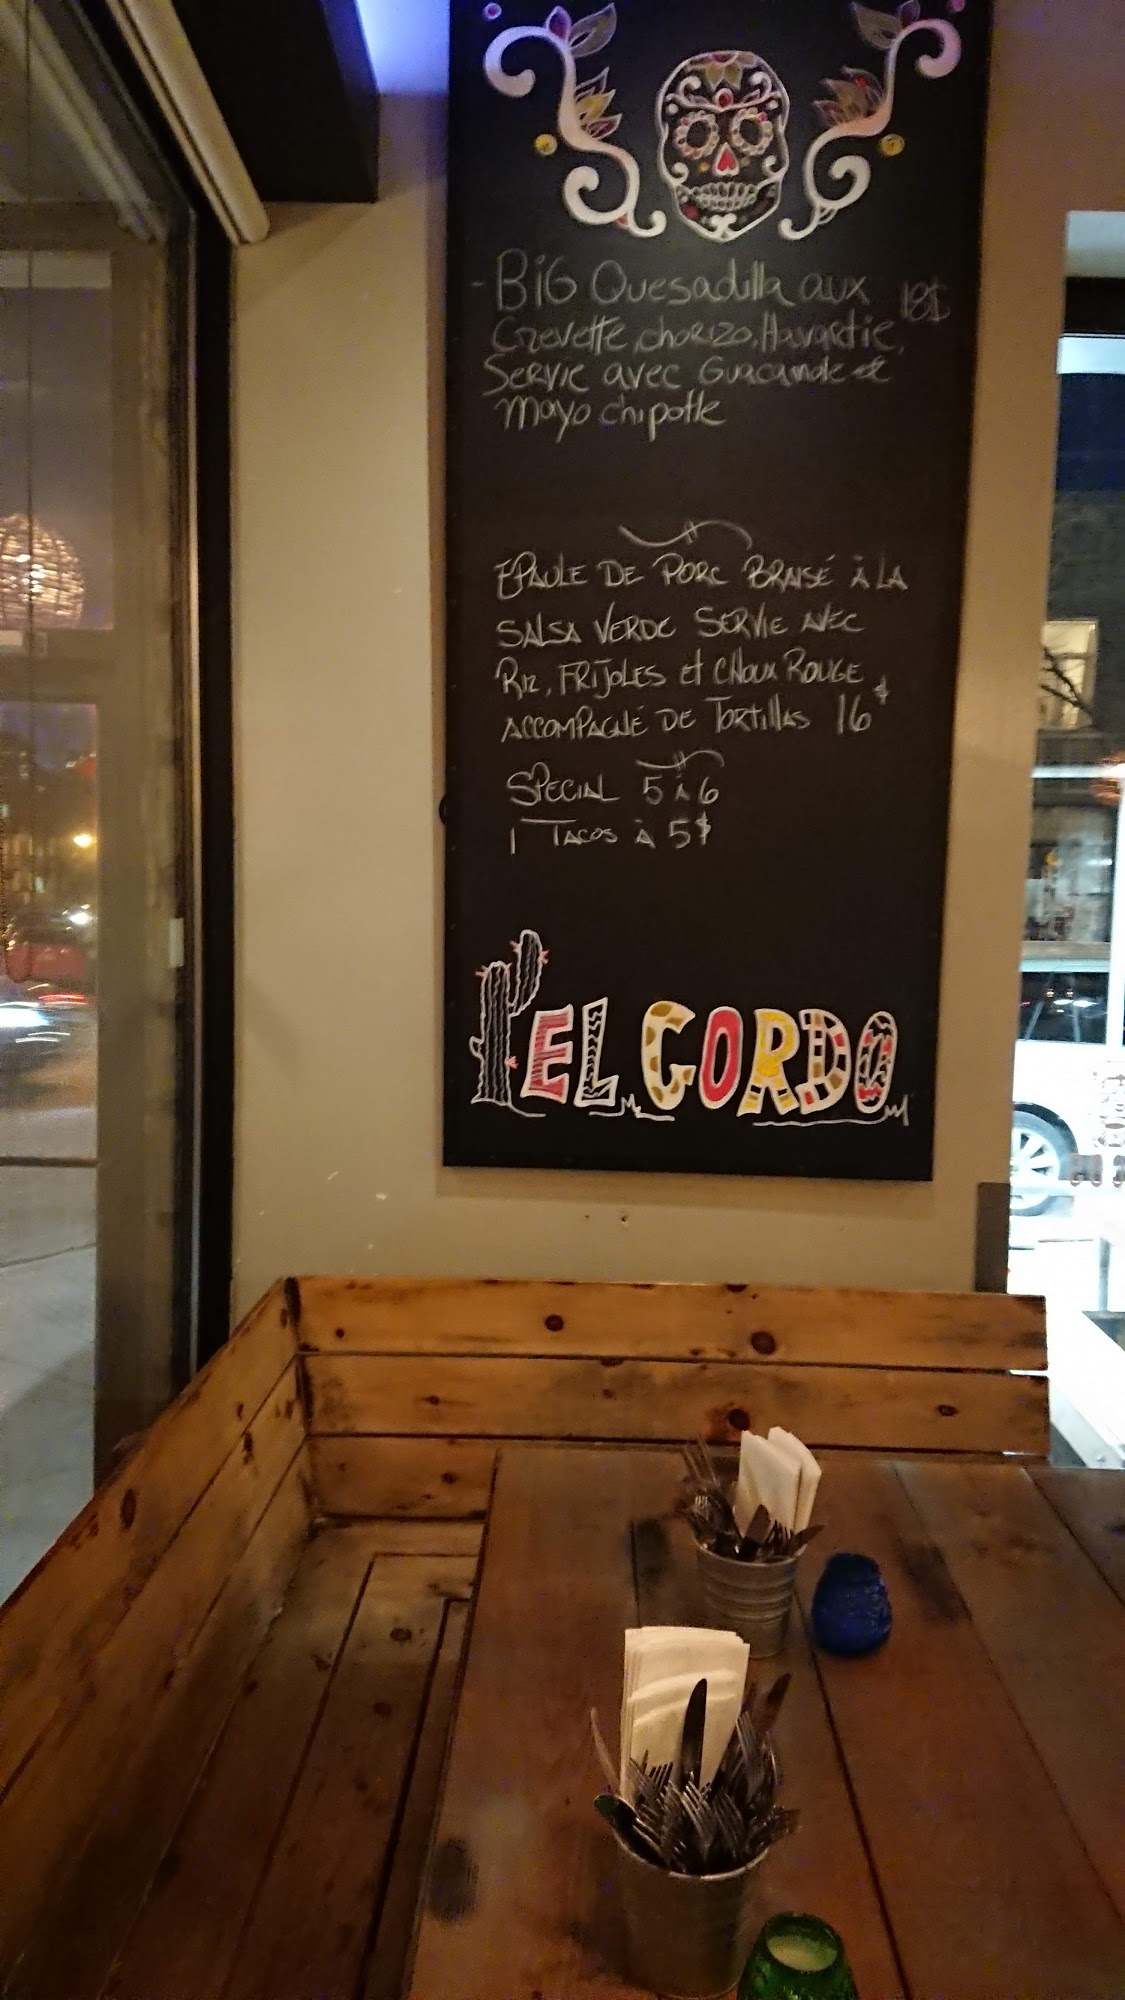 - BiG Quesadilla aux 18$
Crevette, chorizo, Havartie,
Servie avec Guacamole et
Mayo chipotle
EPAULE DE PORC BRAISÉ À LA
SALSA VERDE SERVIE AVEC
RIZ, FRIJOLES et CHOUX ROUGE
ACCOMPAGNÉ DE TORTILLAS 16$
SPECIAL 5 À 6
1 TACOS À 5$
EL GORDO